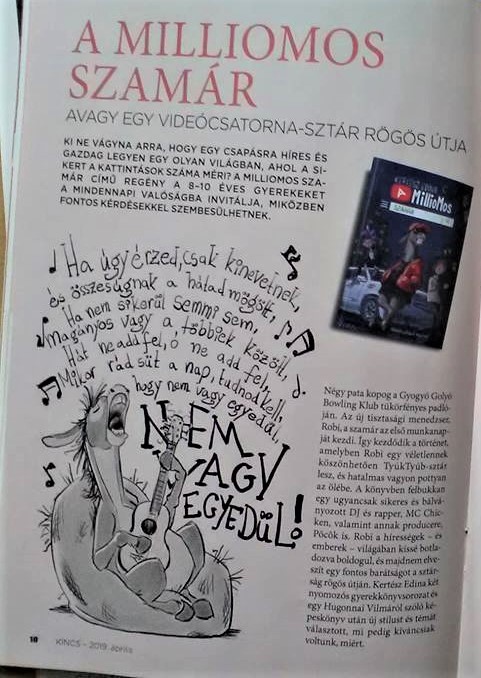 A MILLIOMOS
SZAMÁR
AVAGY EGY VIDEÓCSATORNA-SZTÁR RÖGÖS ÚTJA
KI NE VÁGYNA ARRA, HOGY EGY CSAPÁSRA HÍRES ÉS
GAZDAG LEGYEN EGY OLYAN VILÁGBAN, AHOL A SI-
KERT A KATTINTÁSOK SZÁMA MÉRI? A MILLIOMOS SZA-
MÁR CÍMŰ REGÉNY A 8-10 ÉVES GYEREKEKET
A MINDENNAPI VALÓSÁGBA INVITÁLJA, MIKÖZBEN
FONTOS KÉRDÉSEKKEL SZEMBESÜLHETNEK.
KERTÉSZ EDINA
MILLIOMOS
SZAMÁR
Ha úgy érzed, csak kinevetnek,
és összesúgnak a hátad mögött,
Ha nem sikerül semmi sem,
magányos vagy a többiek között,
Hát ne add fel, ó ne add fel,
Mikor rád süt a nap, tudnod kell,
hogy nem vagy egyedül,
NEM
VAGY
EGYEDÜL!
Négy pata kopog a Gyogyó Golyó
Bowling Klub tükörfényes padló-
ján. Az új tisztasági menedzser,
Robi, a szamár az első munkanap-
ját kezdi. Így kezdődik a történet,
amelyben Robi egy véletlennek
köszönhetően TyúkTyúb-sztár
lesz, és hatalmas vagyon pottyan
az ölébe. A könyvben felbukkan
egy ugyancsak sikeres és bálvá-
nyozott DJ és rapper, MC Chic-
ken, valamint annak producere,
Pöcök is. Robi a hírességek – és
emberek – világában kissé botla-
dozva boldogul, és majdnem elve-
szít egy fontos barátságot a sztár-
ság rögös útján. Kertész Edina két
nyomozós gyerekkönyvsorozat és
egy Hugonnai Vilmáról szóló ké-
peskönyv után új stílust és témát
választott, mi pedig kíváncsiak
voltunk, miért.
18 KINCS – 2019. április